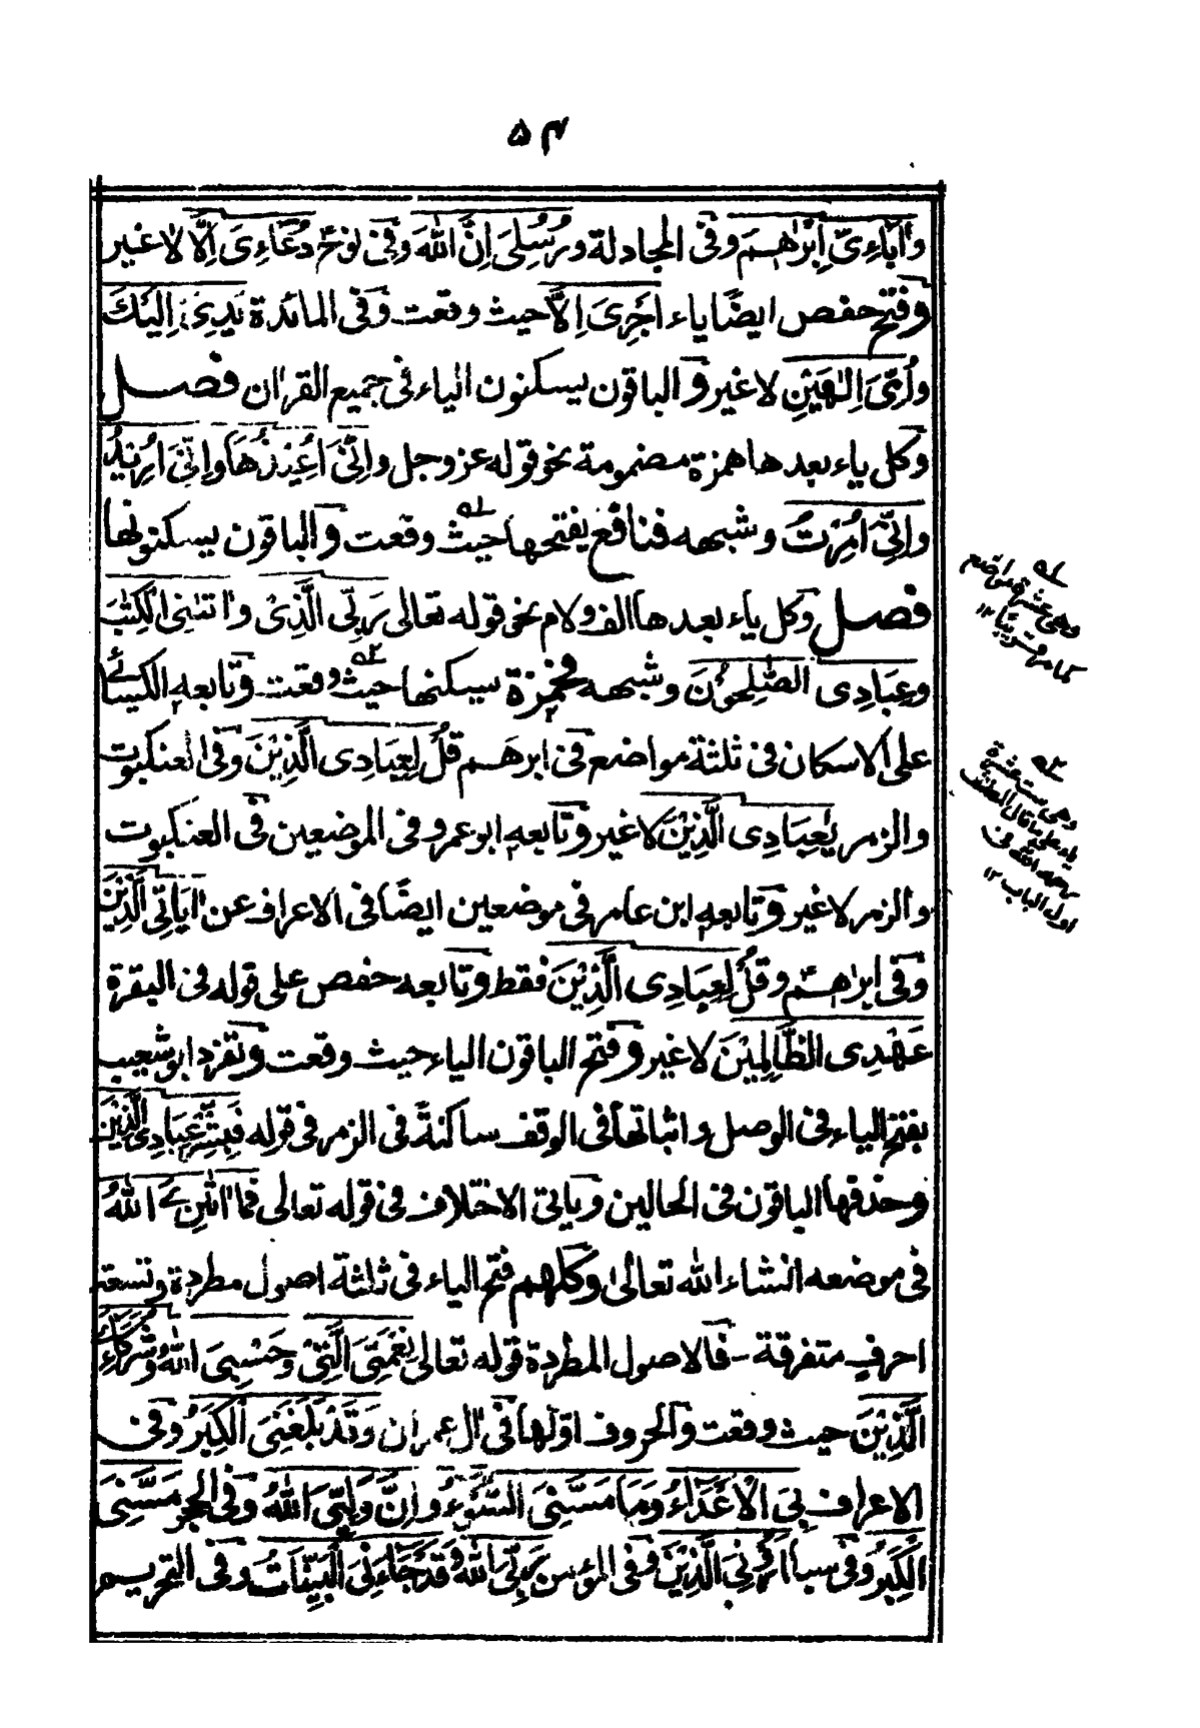 ۵۴
وَاٰبَآءِىٓ اِبْرٰهِيْمَ وفى المجادلة ورُسُلِىَ اِنَّ اللّٰهَ وفى نوح دُعَآءِىَ اِلَّا لا غير
وفتح حفص ايضًا ياء اَجْرِىَ اِلَّا حيث وقعت وفى المائدة يَدِىَ اِلَيْكَ
وَاُمِّىَ اِلٰهَيْنِ لا غير والباقون يسكنون الياء فى جميع القرآن فصل
وكل ياء بعدها همزة مضمومة نحو قوله عز وجل وَاِنِّىٓ اُعِيْذُهَا وَاِنِّىٓ اُرِيْدُ
وَاِنِّىٓ اُمِرْتُ وشبهه فنافع يفتحها حيث وقعت والباقون يسكنونها
فصل وكل ياء بعدها الف ولام نحو قوله تعالى رَبِّىَ الَّذِىْ وَاٰتٰنِىَ الْكِتٰبَ
وَعِبَادِىَ الصّٰلِحُوْنَ وشبهه فحمزة يسكنها حيث وقعت وتابعه الكسائى
على الاسكان فى ثلثة مواضع فى ابرهيم قُلْ لِعِبَادِىَ الَّذِيْنَ وفى العنكبوت
والزمر يٰعِبَادِىَ الَّذِيْنَ لا غير وتابعه ابو عمرو فى الموضعين فى العنكبوت
والزمر لا غير وتابعه ابن عامر فى موضعين ايضًا فى الاعراف عن اٰيَاتِىَ الَّذِيْنَ
وفى ابرٰهيم وقُلْ لِعِبَادِىَ الَّذِيْنَ فقط وتابعه حفص على قوله فى البقرة
عَهْدِى الظَّالِمِيْنَ لا غير وفتح الباقون الياء حيث وقعت وتفرد ابو شعيب
بفتح الياء فى الوصل واثباتها فى الوقف ساكنةً فى الزمر فى قوله فَبَشِّرْ عِبَادِىَ الَّذِيْنَ
وحذفها الباقون فى الحالين وياتى الاختلاف فى قوله تعالى فَمَا اٰتٰنِىَ اللّٰهُ
فى موضعه انشاء الله تعالىٰ وكلهم فتح الياء فى ثلثة اصول مطردة وتسعة
احرفٍ متفرقة - فالاصول المطردة قوله تعالى نِعْمَتِىَ الَّتِىْ وَحَسْبِىَ اللّٰهُ وَشُرَكَآءِىَ
الَّذِيْنَ حيث وقعت والحروف اولها فى اٰل عمران وَقَدْ بَلَغَنِىَ الْكِبَرُ وفى
الاعراف بِىَ الْاَعْدَآءَ وَمَا مَسَّنِىَ السُّوْٓءُ وَاِنَّ وَلِيِّىَ اللّٰهُ وفى الحجر مَسَّنِىَ
الْكِبَرُ وفى سبأ اَرُوْنِىَ الَّذِيْنَ وفى المؤمن رَبِّىَ اللّٰهُ وَقَدْ جَآءَنِىَ الْبَيِّنٰتُ وفى التحريم
وهى عشرة مواضع
۱۲
وهى ست عشرة
ياء على ما قال المصنف
رحمه الله فى
اول الباب ۱۲